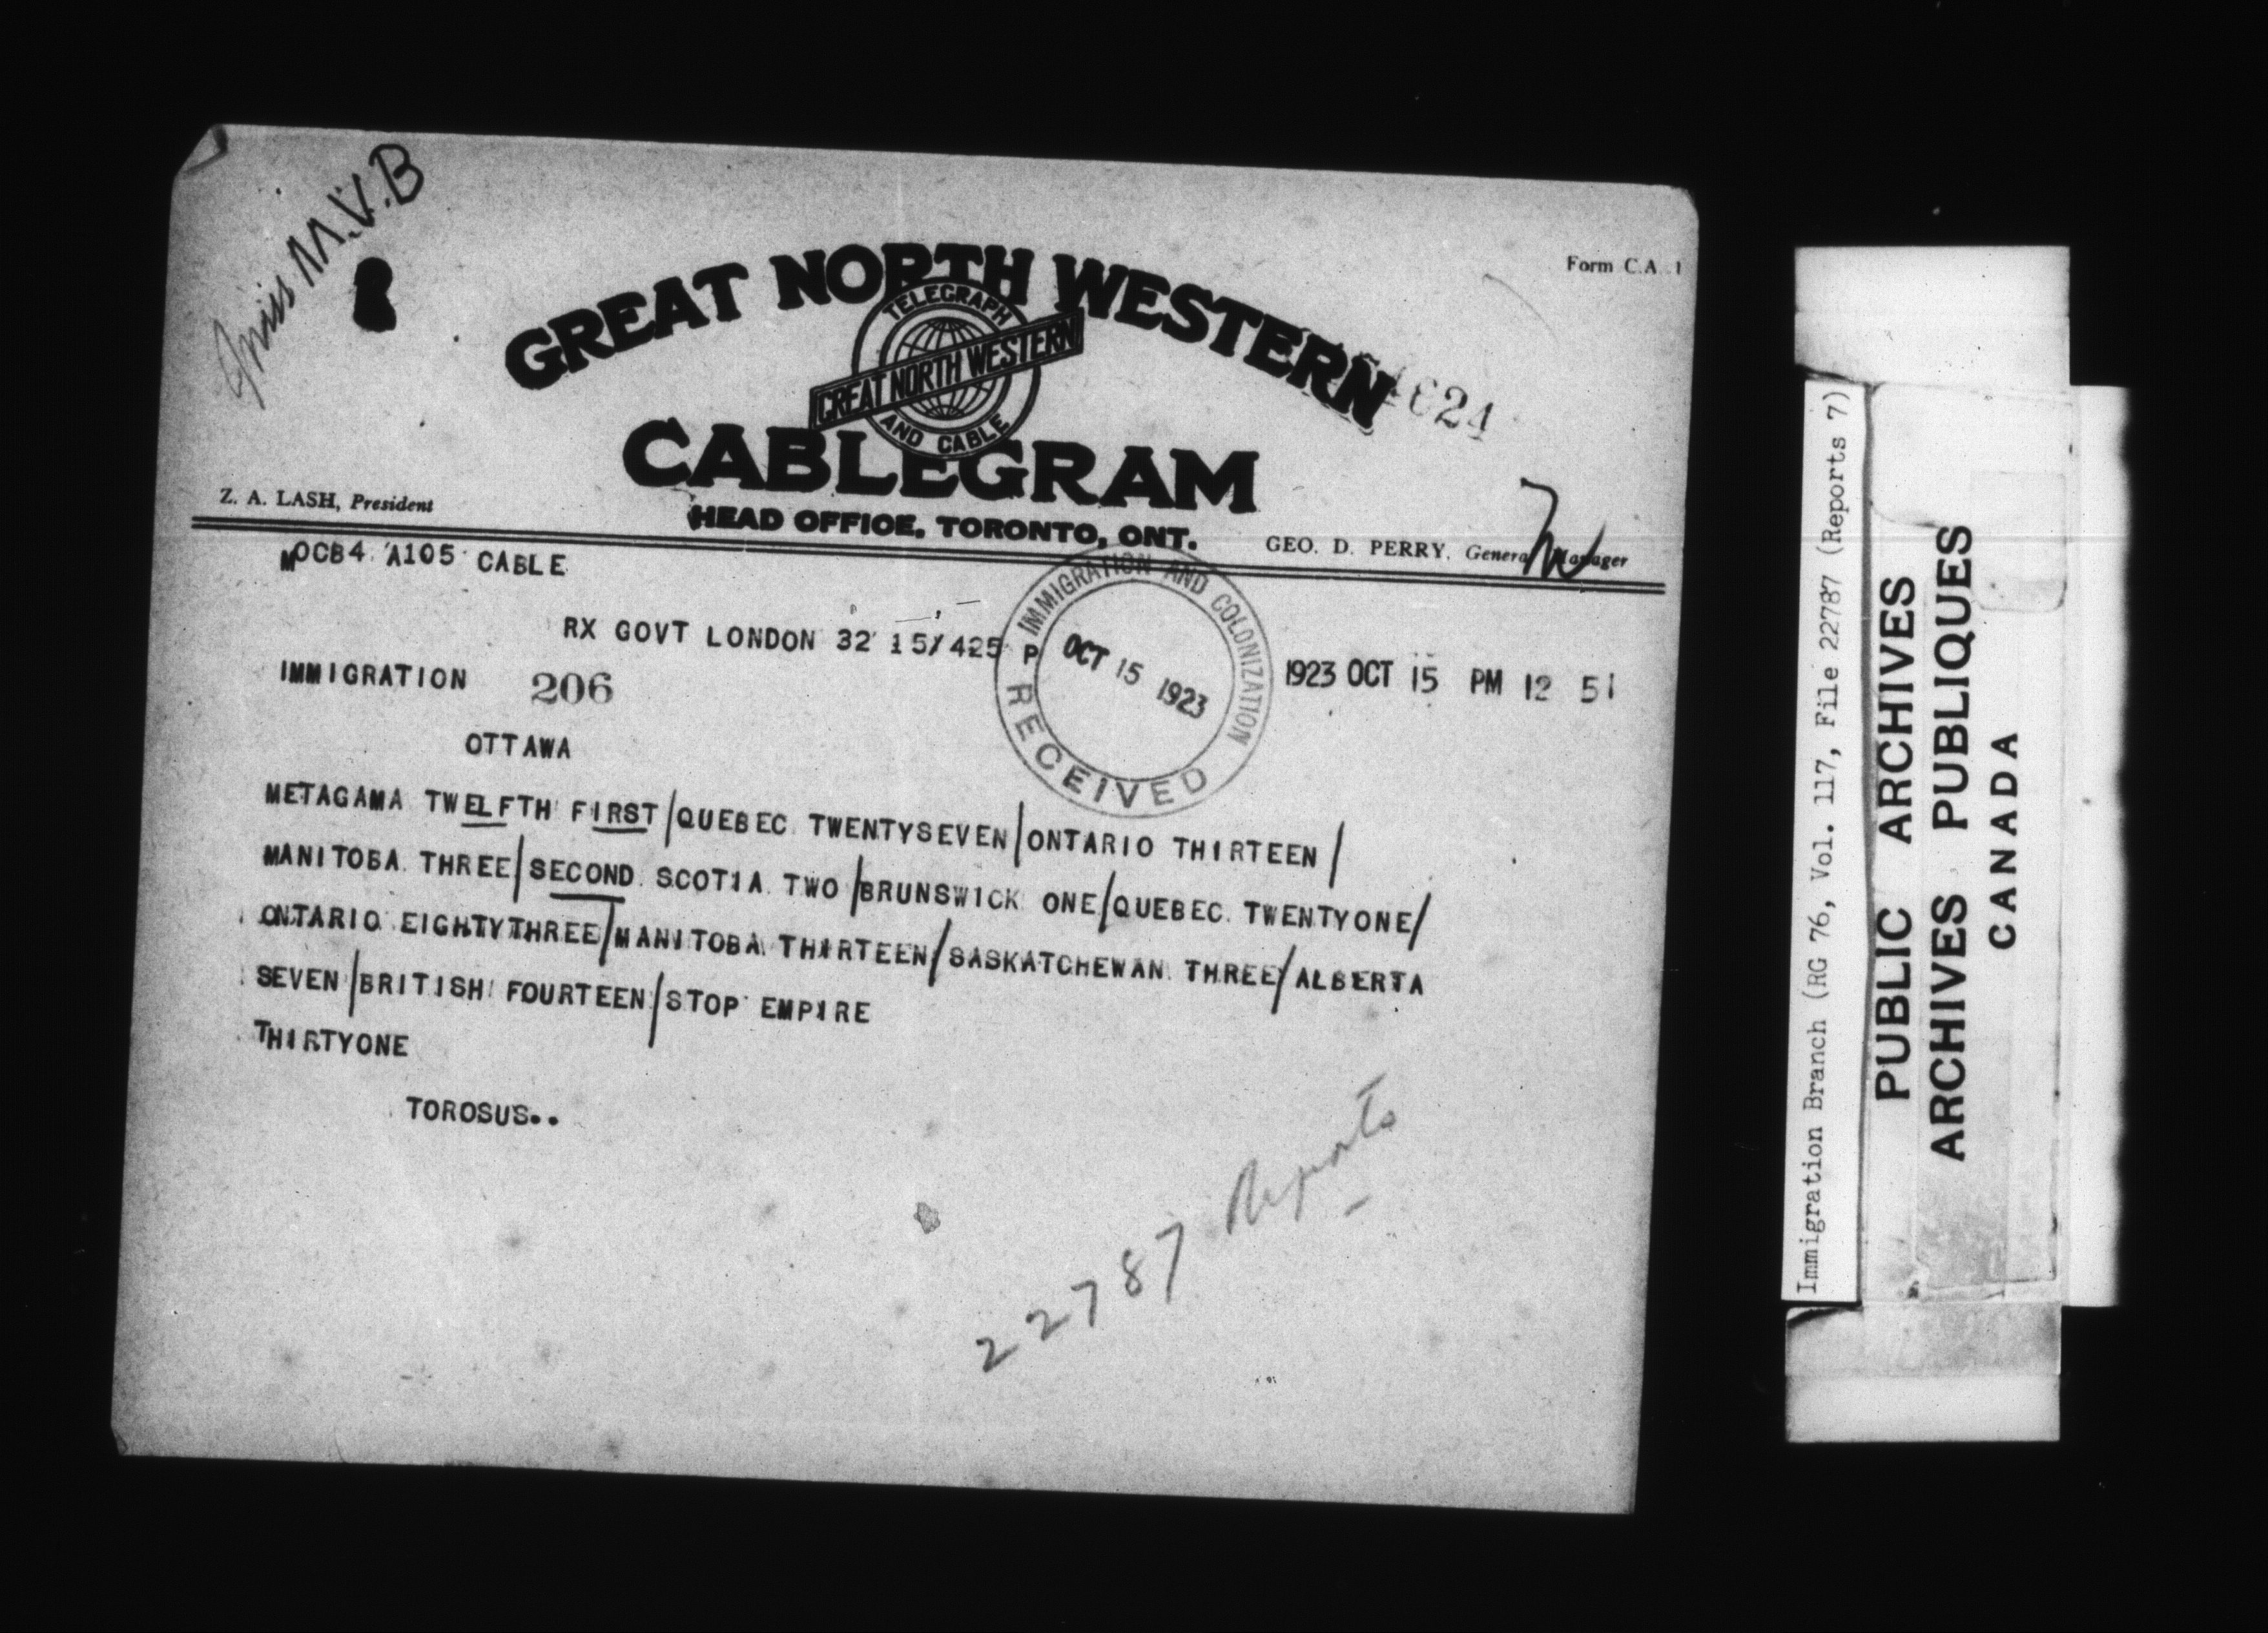 Miss M.V.B
Form C.A. 1
GREAT NORTH WESTERN
TELEGRAPH
GREAT NORTH WESTERN
AND CABLE
CABLEGRAM
Z. A. LASH, President
HEAD OFFICE, TORONTO, ONT.
GEO. D. PERRY, General Manager
MOCB4 A105 CABLE
RX GOVT LONDON 32 15/425 P
IMMIGRATION AND COLONIZATION
OCT 15 1923
RECEIVED
1923 OCT 15 PM 12 51
IMMIGRATION 206
OTTAWA
METAGAMA TWELFTH FIRST/QUEBEC TWENTYSEVEN/ONTARIO THIRTEEN/
MANITOBA THREE/SECOND SCOTIA TWO/BRUNSWICK ONE/QUEBEC TWENTYONE/
ONTARIO EIGHTYTHREE/MANITOBA THIRTEEN/SASKATCHEWAN THREE/ALBERTA
SEVEN/BRITISH FOURTEEN/STOP EMPIRE
THIRTYONE
TOROSUS..
22787 Reports
Immigration Branch (RG 76, Vol. 117, File 22787 (Reports 7)
PUBLIC ARCHIVES
ARCHIVES PUBLIQUES
CANADA